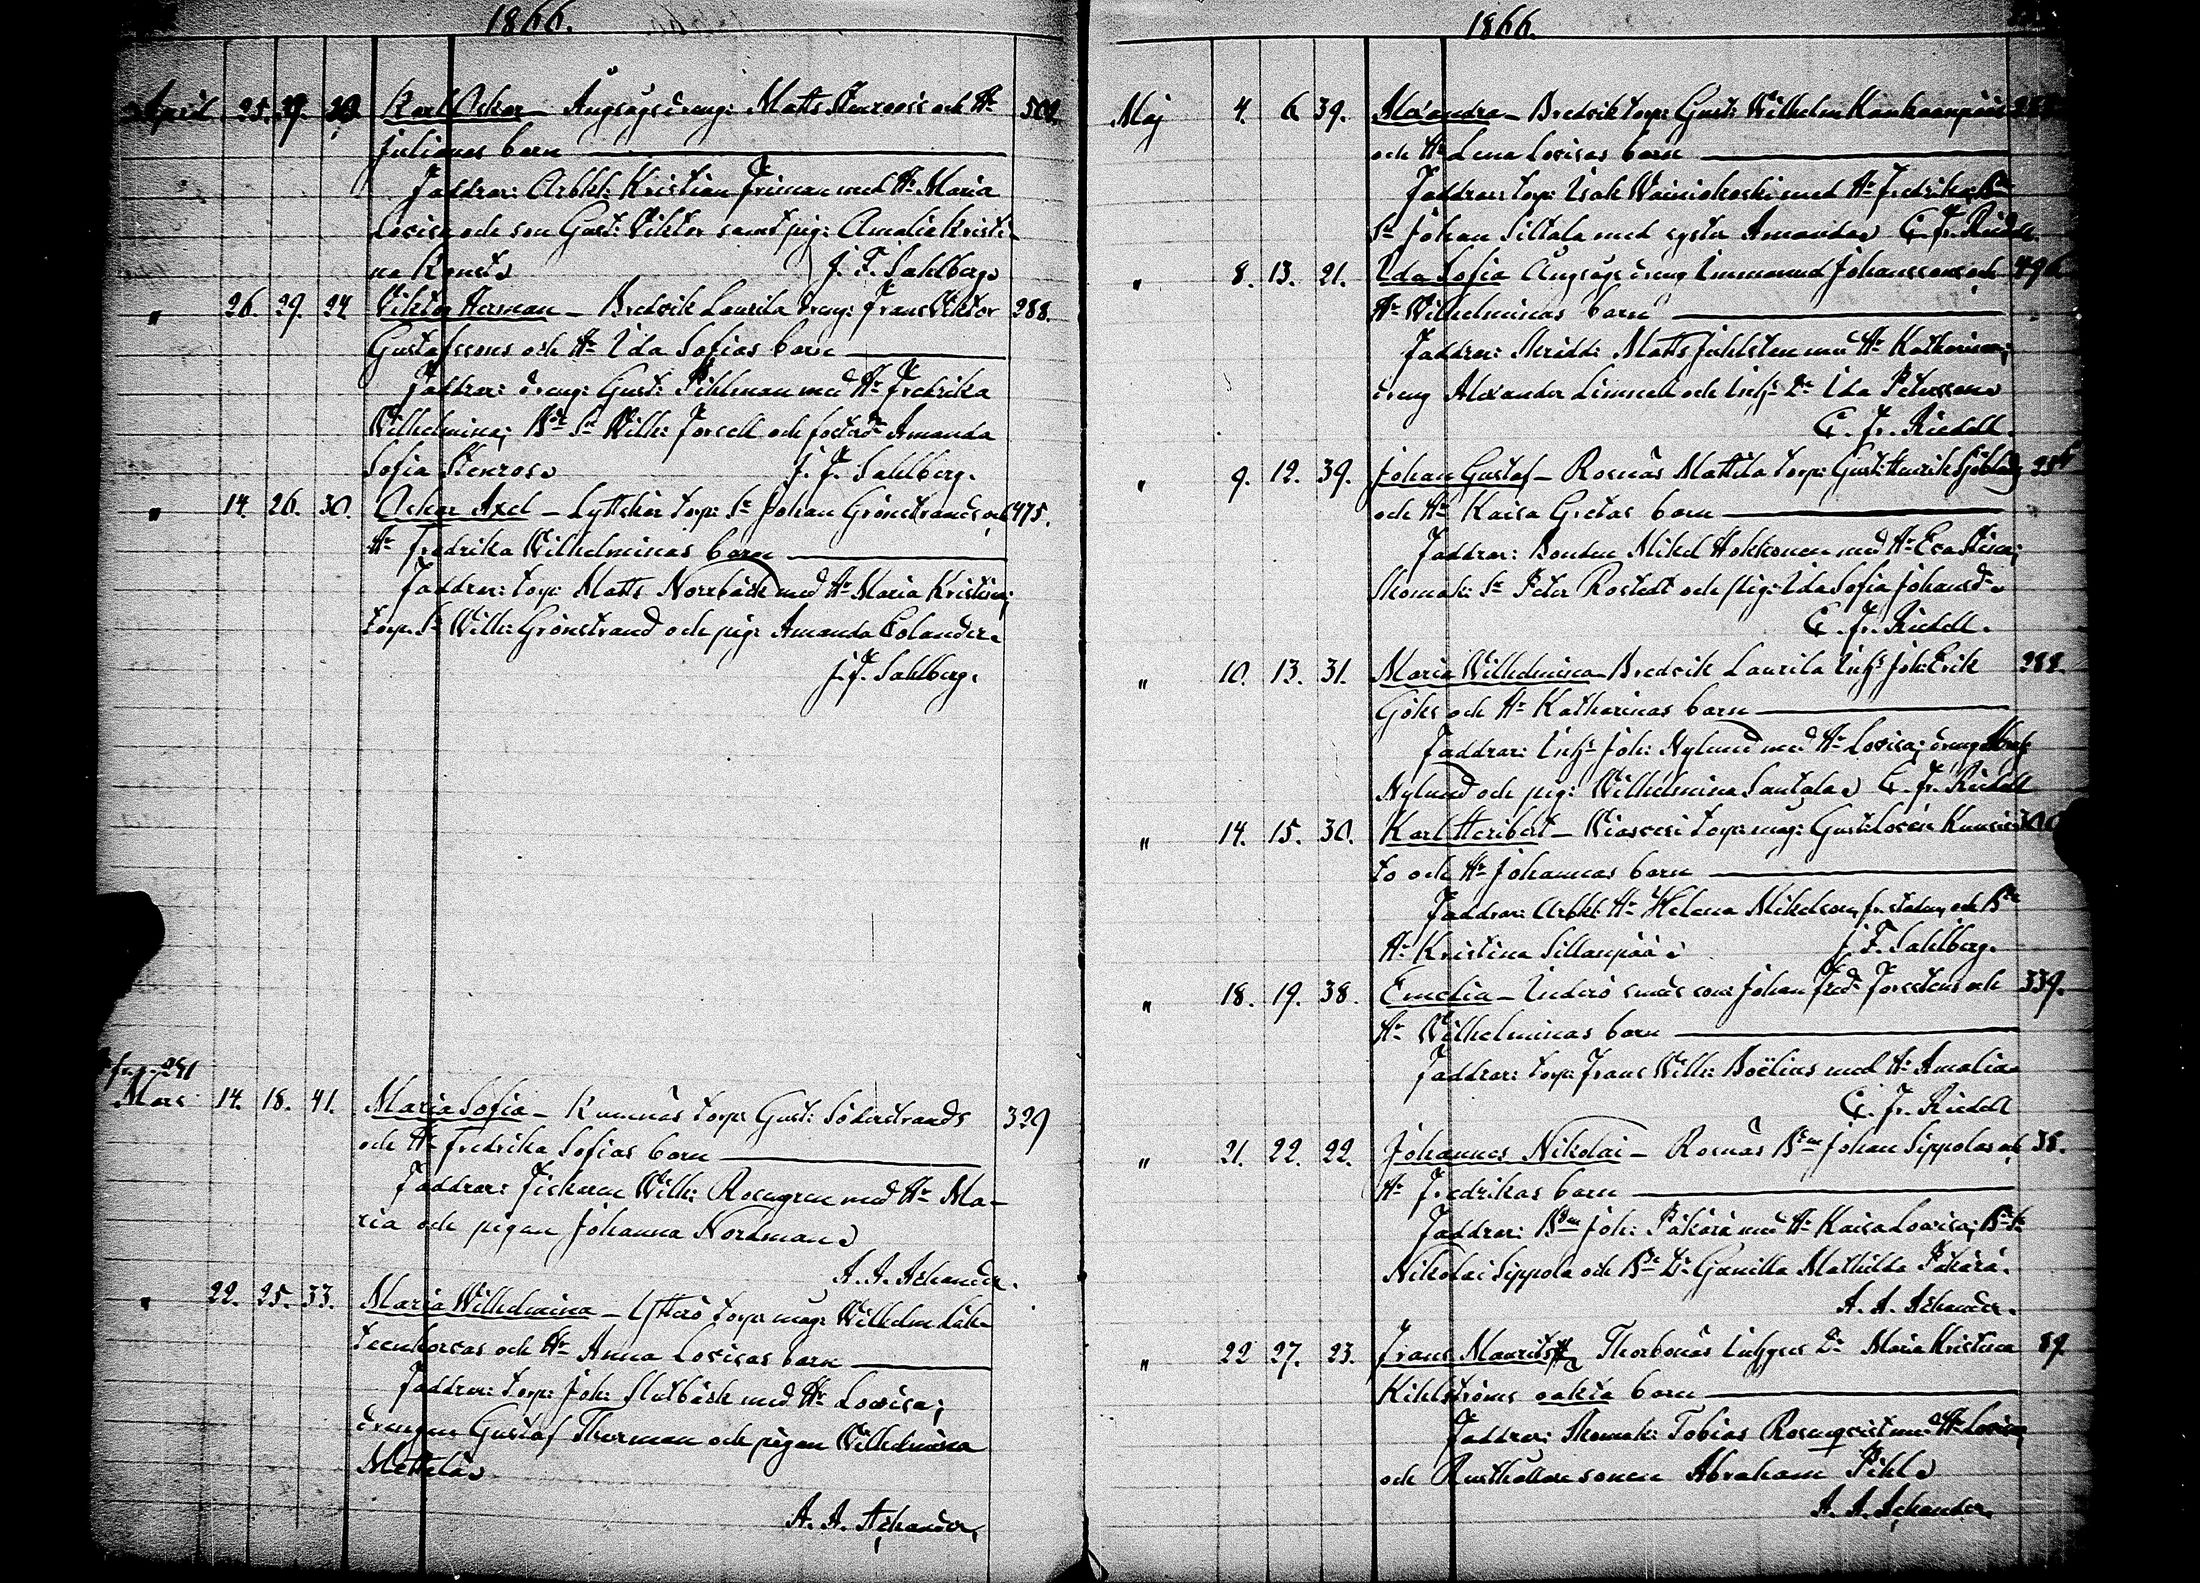 1866.
April 25. 29. 30. Karl Oskar – Ångsågsdreng: Matts Stenroos's och Hu 502.
Julianas barn
Faddrar: Arbkl: Kristian Friman med Hu Maria
Lovisa och son Gust: Viktor samt pig: Amalia Kristi-
na Konst. J. F. Sahlberg.
" 26. 29. 24. Viktor Herman – Bredvik Laurila dreng: Frans Viktor 288.
Gustafssons och Hu Ida Sofias barn
Faddrar: dreng: Gust: Pihlman med Hu Fredrika
Wilhelmina; Bde Sn Wilh: Forsell och fosterdr Amanda
Sofia Stenros. J. F. Sahlberg.
" 14. 26. 30. Oskar Axel – Lyttskär torp: Sn Johan Grönstrands och 475.
Hu Fredrika Wilhelminas barn
Faddrar: torp: Matts Norrbäck med Hu Maria Kristina;
torp. Sn Wilh: Grönstrand och pig: Amanda Colander.
J. F. Sahlberg.
241
Mars 14. 18. 41. Maria Sofia – Kumnäs torp: Gust: Söderstrands 329
och Hu Fredrika Sofias barn
Faddrar: Fiskaren Wilh: Rosengren med Hu Ma-
ria och pigan Johanna Nordman.
A. A. Azhander.
" 22. 25. 33. Maria Wilhelmina – Ytterö torp: mag: Wilhelm Läh-
teenkorvas och Hu Anna Lovisas barn
Faddrar: torp: Joh: Slutbäck med Hu Lovisa;
drengen Gustaf Therman och pigan Wilhelmina
Mattila.
A. A. Azhander.
1866.
Maj 4. 6. 39. Alexandra – Bredvik torp: Gust: Wilhelm Kankaanpääs
och Hu Lena Lovisas barn
Faddrar: torp: Isak Wainiokoski med Hu Fredrika; Bde
Sn Johan Siltala med syster Amanda. C. Fr. Riedell.
" 8. 13. 21. Ida Sofia Ångsågsdreng Immanuel Johanssons och 496
Hu Wilhelminas barn
Faddrar: Skrädd: Matts Juhlsten med Hu Katharina;
dreng Alexander Limnell och Inhs Dr Ida Peterson.
C. Fr. Riedell.
" 9. 12. 39. Johan Gustaf – Rosnäs Mattila torp: Gust: Henrik Sjöblads 25
och Hu Kaisa Gretas barn
Faddrar: Bonden Mikel Hokkonen med Hu Eva Stina;
Skomak: Sn Peter Rostedt och pig: Ida Sofia Johansdr.
C. Fr. Riedell.
" 10. 13. 31. Maria Wilhelmina – Bredvik Laurila Inhs Joh: Erik 288.
Göks och Hu Katharinas barn
Faddrar: Inhs Joh: Nylund med Hu Lovisa; dreng
Nylund och pig: Wilhelmina Santala. C. Fr. Riedell
" 14. 15. 30. Karl Heribert – Wiasvesi torp: mag: Gust: Lovén Kuusis-
to och Hu Johannas barn
Faddrar: Arbkl: Hu Helena Mikelson, fr. staden, och Bde
Hu Kristina Sillanpää. J. F. Sahlberg.
" 18. 19. 38. Emelia – Inderö smeds son: Johan Fred: Forsstens och 339.
Hu Wilhelminas barn
Faddrar: torp: Frans Wilh: Boëlius med Hu Amalia.
C. Fr. Riedell
" 21. 22. 22. Johannes Nikolai – Rosnäs Bden Johan Sippolas och 38.
Hu Fredrikas barn
Faddrar: Bden Joh: Päkärä med Hu Kaisa Lovisa; Bde Sn
Nikolai Sippola och Bde Dr Gunilla Mathilda Päkärä.
A. A. Azhander.
" 22 27. 23. Frans Maurits Thorbonäs Inhyses Dr Maria Kristina 87
Kihlströms oakta barn
Faddrar: Skomak: Tobias Rosenqvist med Hu Lovisa,
och Rusthållaresonen Abraham Pihl.
A. A. Azhander.